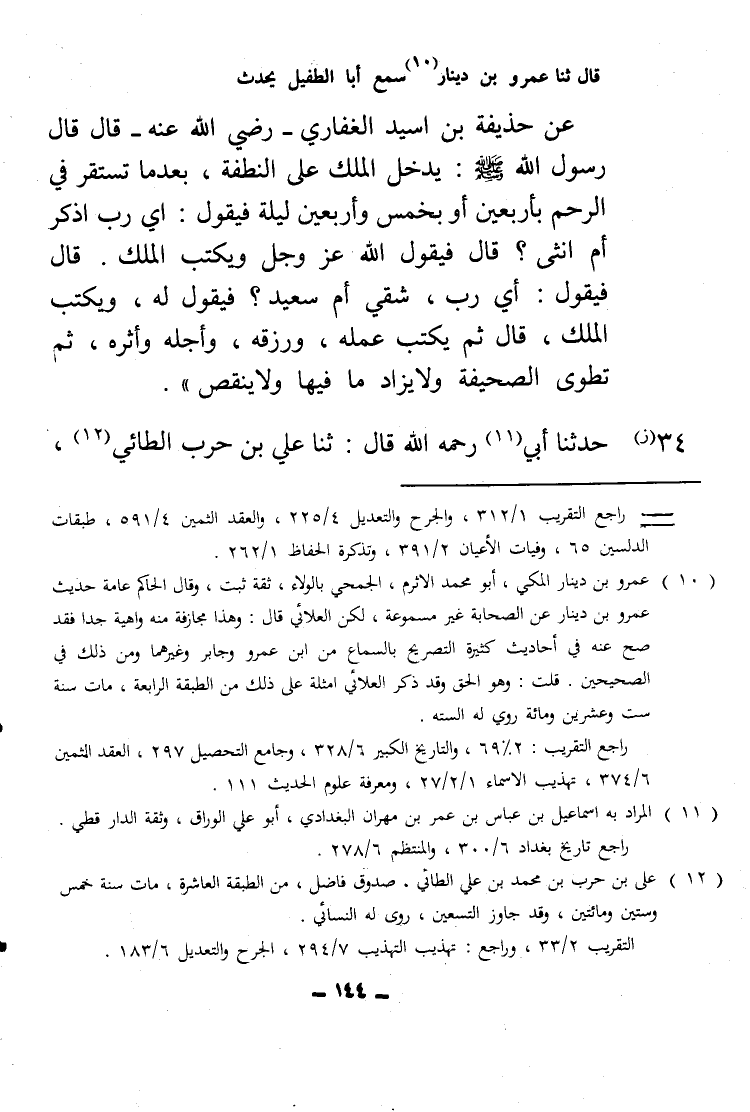 قال ثنا عمرو بن دينار(١٠) سمع أبا الطفيل يحدث
عن حذيفة بن اسيد الغفاري ـ رضي الله عنه ـ قال قال
رسول الله ﷺ : يدخل الملك على النطفة ، بعدما تستقر في
الرحم بأربعين أو بخمس وأربعين ليلة فيقول : اي رب اذكر
أم انثى ؟ قال فيقول الله عز وجل ويكتب الملك . قال
فيقول : أي رب ، شقي أم سعيد ؟ فيقول له ، ويكتب
الملك ، قال ثم يكتب عمله ، ورزقه ، وأجله وأثره ، ثم
تطوى الصحيفة ولايزاد ما فيها ولاينقص » .
٣٤(ز) حدثنا أبي(١١) رحمه الله قال : ثنا علي بن حرب الطائي(١٢) ،
= راجع التقريب ٣١٢/١ ، والجرح والتعديل ٢٢٥/٤ ، والعقد الثمين ٥٩١/٤ ، طبقات
الدلسين ٦٥ ، وفيات الأعيان ٣٩١/٢ ، وتذكرة الحفاظ ٢٦٢/١ .
( ١٠ ) عمرو بن دينار المكي ، أبو محمد الاثرم ، الجمحي بالولاء ، ثقة ثبت ، وقال الحاكم عامة حديث
عمرو بن دينار عن الصحابة غير مسموعة ، لكن العلائي قال : وهذا مجازفة منه واهية جدا فقد
صح عنه في أحاديث كثيرة التصريح بالسماع من ابن عمرو وجابر وغيرهما ومن ذلك في
الصحيحين . قلت : وهو الحق وقد ذكر العلائي امثلة على ذلك من الطبقة الرابعة ، مات سنة
ست وعشرين ومائة روي له السته .
راجع التقريب : ٦٩٪٢ ، والتاريخ الكبير ٣٢٨/٦ ، وجامع التحصيل ٢٩٧ ، العقد الثمين
٣٧٤/٦ ، تهذيب الاسماء ٢٧/٢/١ ، ومعرفة علوم الحديث ١١١ .
( ١١ ) المراد به اسماعيل بن عباس بن عمر بن مهران البغدادي ، أبو علي الوراق ، وثقة الدار قطي .
راجع تاريخ بغداد ٣٠٠/٦ ، والمنتظم ٢٧٨/٦ .
( ١٢ ) على بن حرب بن محمد بن علي الطائي . صدوق فاضل ، من الطبقة العاشرة ، مات سنة خمس
وستين ومائتين ، وقد جاوز التسعين ، روى له النسائي .
التقريب ٣٣/٢ ، وراجع : تهذيب التهذيب ٢٩٤/٧ ، الجرح والتعديل ١٨٣/٦ .
ـ ١٤٤ ـ